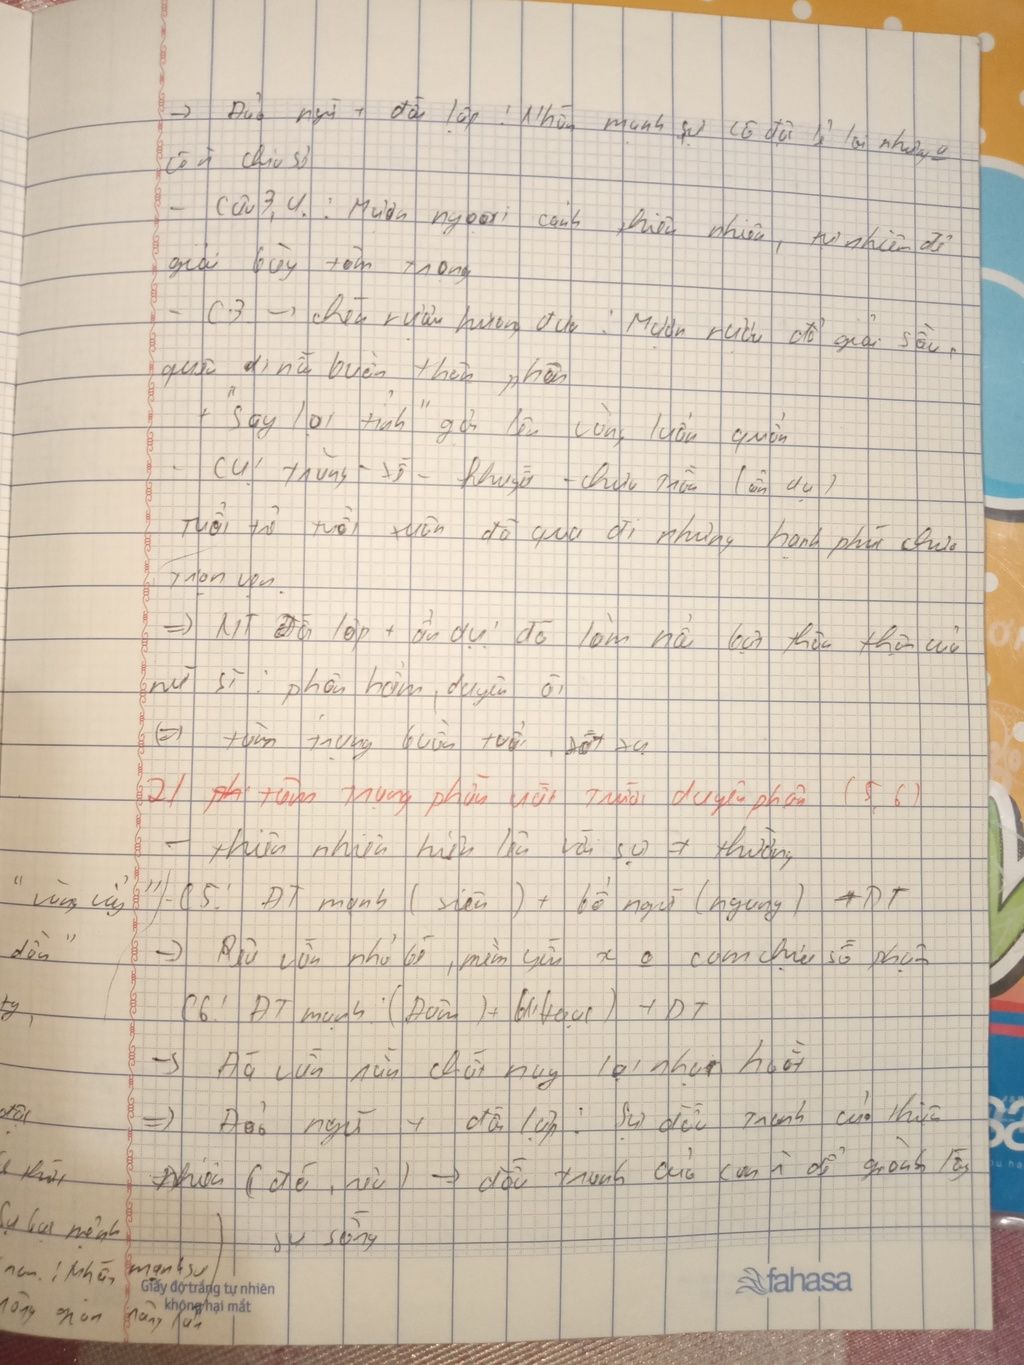 → Đảo ngữ + đối lập : Nhấn mạnh sự cô đơn lẻ loi nhưng
chịu số
- Câu 3, 4 : Mượn ngoại cảnh thiên nhiên, tự nhiên để
giải bày tâm trạng
- C3 → chén rượu hương đưa : Mượn rượu để giải sầu,
quên đi nỗi buồn thân phận
+ "Say lại tỉnh" gợi lên vòng luẩn quẩn
- C4: trăng - xế - khuyết - chưa tròn (ẩn dụ)
tuổi trẻ tuổi xuân đã qua đi nhưng hạnh phúc chưa
trọn vẹn.
=> NT Đối lập + ẩn dụ: đã làm nổi bật thân phận của
nữ sĩ : phận hẩm, duyên ôi
=> tâm trạng buồn tủi, xót xa
2/ tâm trạng phẫn uất trước duyên phận (5, 6)
- thiên nhiên hiện lên với sự ≠ thường
"vùng vẫy" - C5: ĐT mạnh (xiên) + bổ ngữ (ngang) + DT
đám" => Rêu vốn nhỏ bé, mềm yếu x o cam chịu số phận
C6: ĐT mạnh: (Đâm) + (toạc) + DT
→ Đá vốn rắn chắc nay lại nhọn hoắt
=> Đảo ngữ + đối lập : Sự đấu tranh của thiên
nhiên (đá, rêu) → đấu tranh của con để giành lấy
sự sống
mạnh sự
Giấy độ trắng tự nhiên
không hại mắt
fahasa